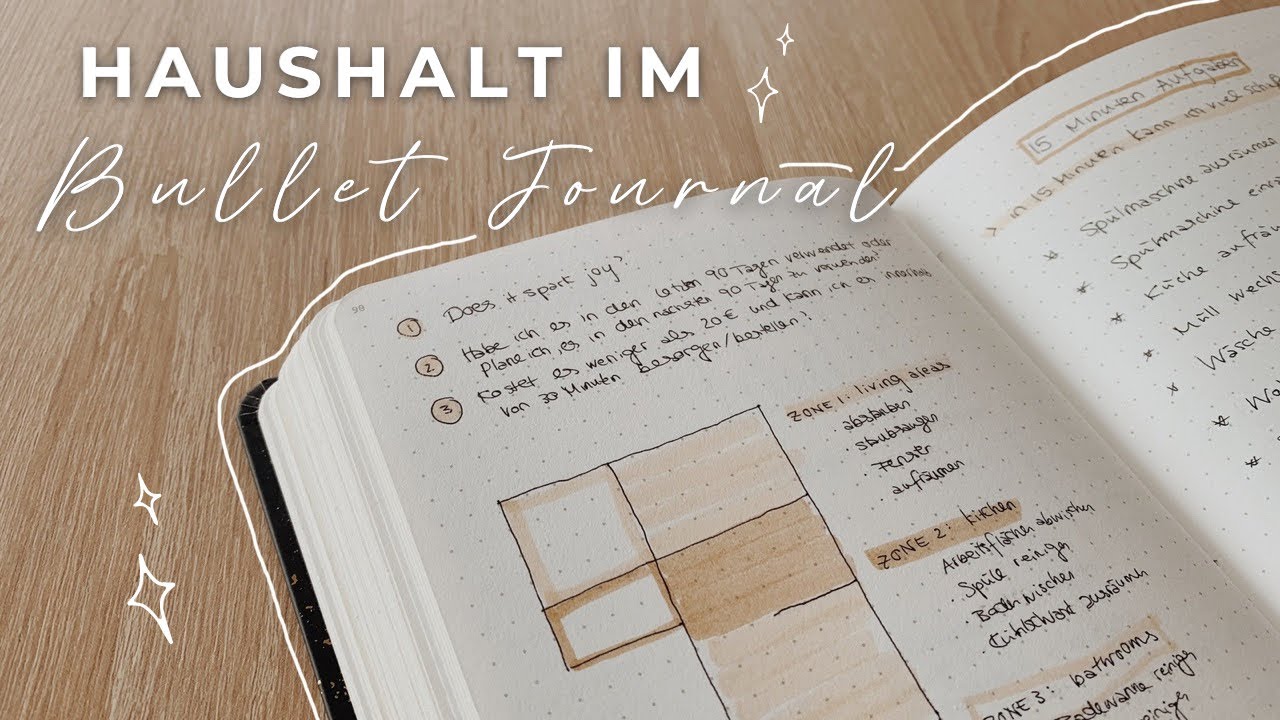 HAUSHALT IM
Bullet Journal
98
1 Does it spark joy?
2 Habe ich es in den letzten 90 Tagen verwendet oder
plane ich es in den nächsten 90 Tagen zu verwenden?
3 Kostet es weniger als 20€ und kann ich es innerhalb
von 30 Minuten besorgen/bestellen?
ZONE 1: living areas
abstauben
staubsaugen
Fenster
aufräumen
ZONE 2: kitchen
Arbeitsflächen abwischen
Spüle reinigen
Boden wischen
Kühlschrank ausräumen
ZONE 3: bathrooms
Badewanne reinigen
15 Minuten Aufgaben
> in 15 Minuten kann ich viel
* Spülmaschine ausräumen
* Spülmaschine
* Küche
* Müll
* Wäsche
*
*